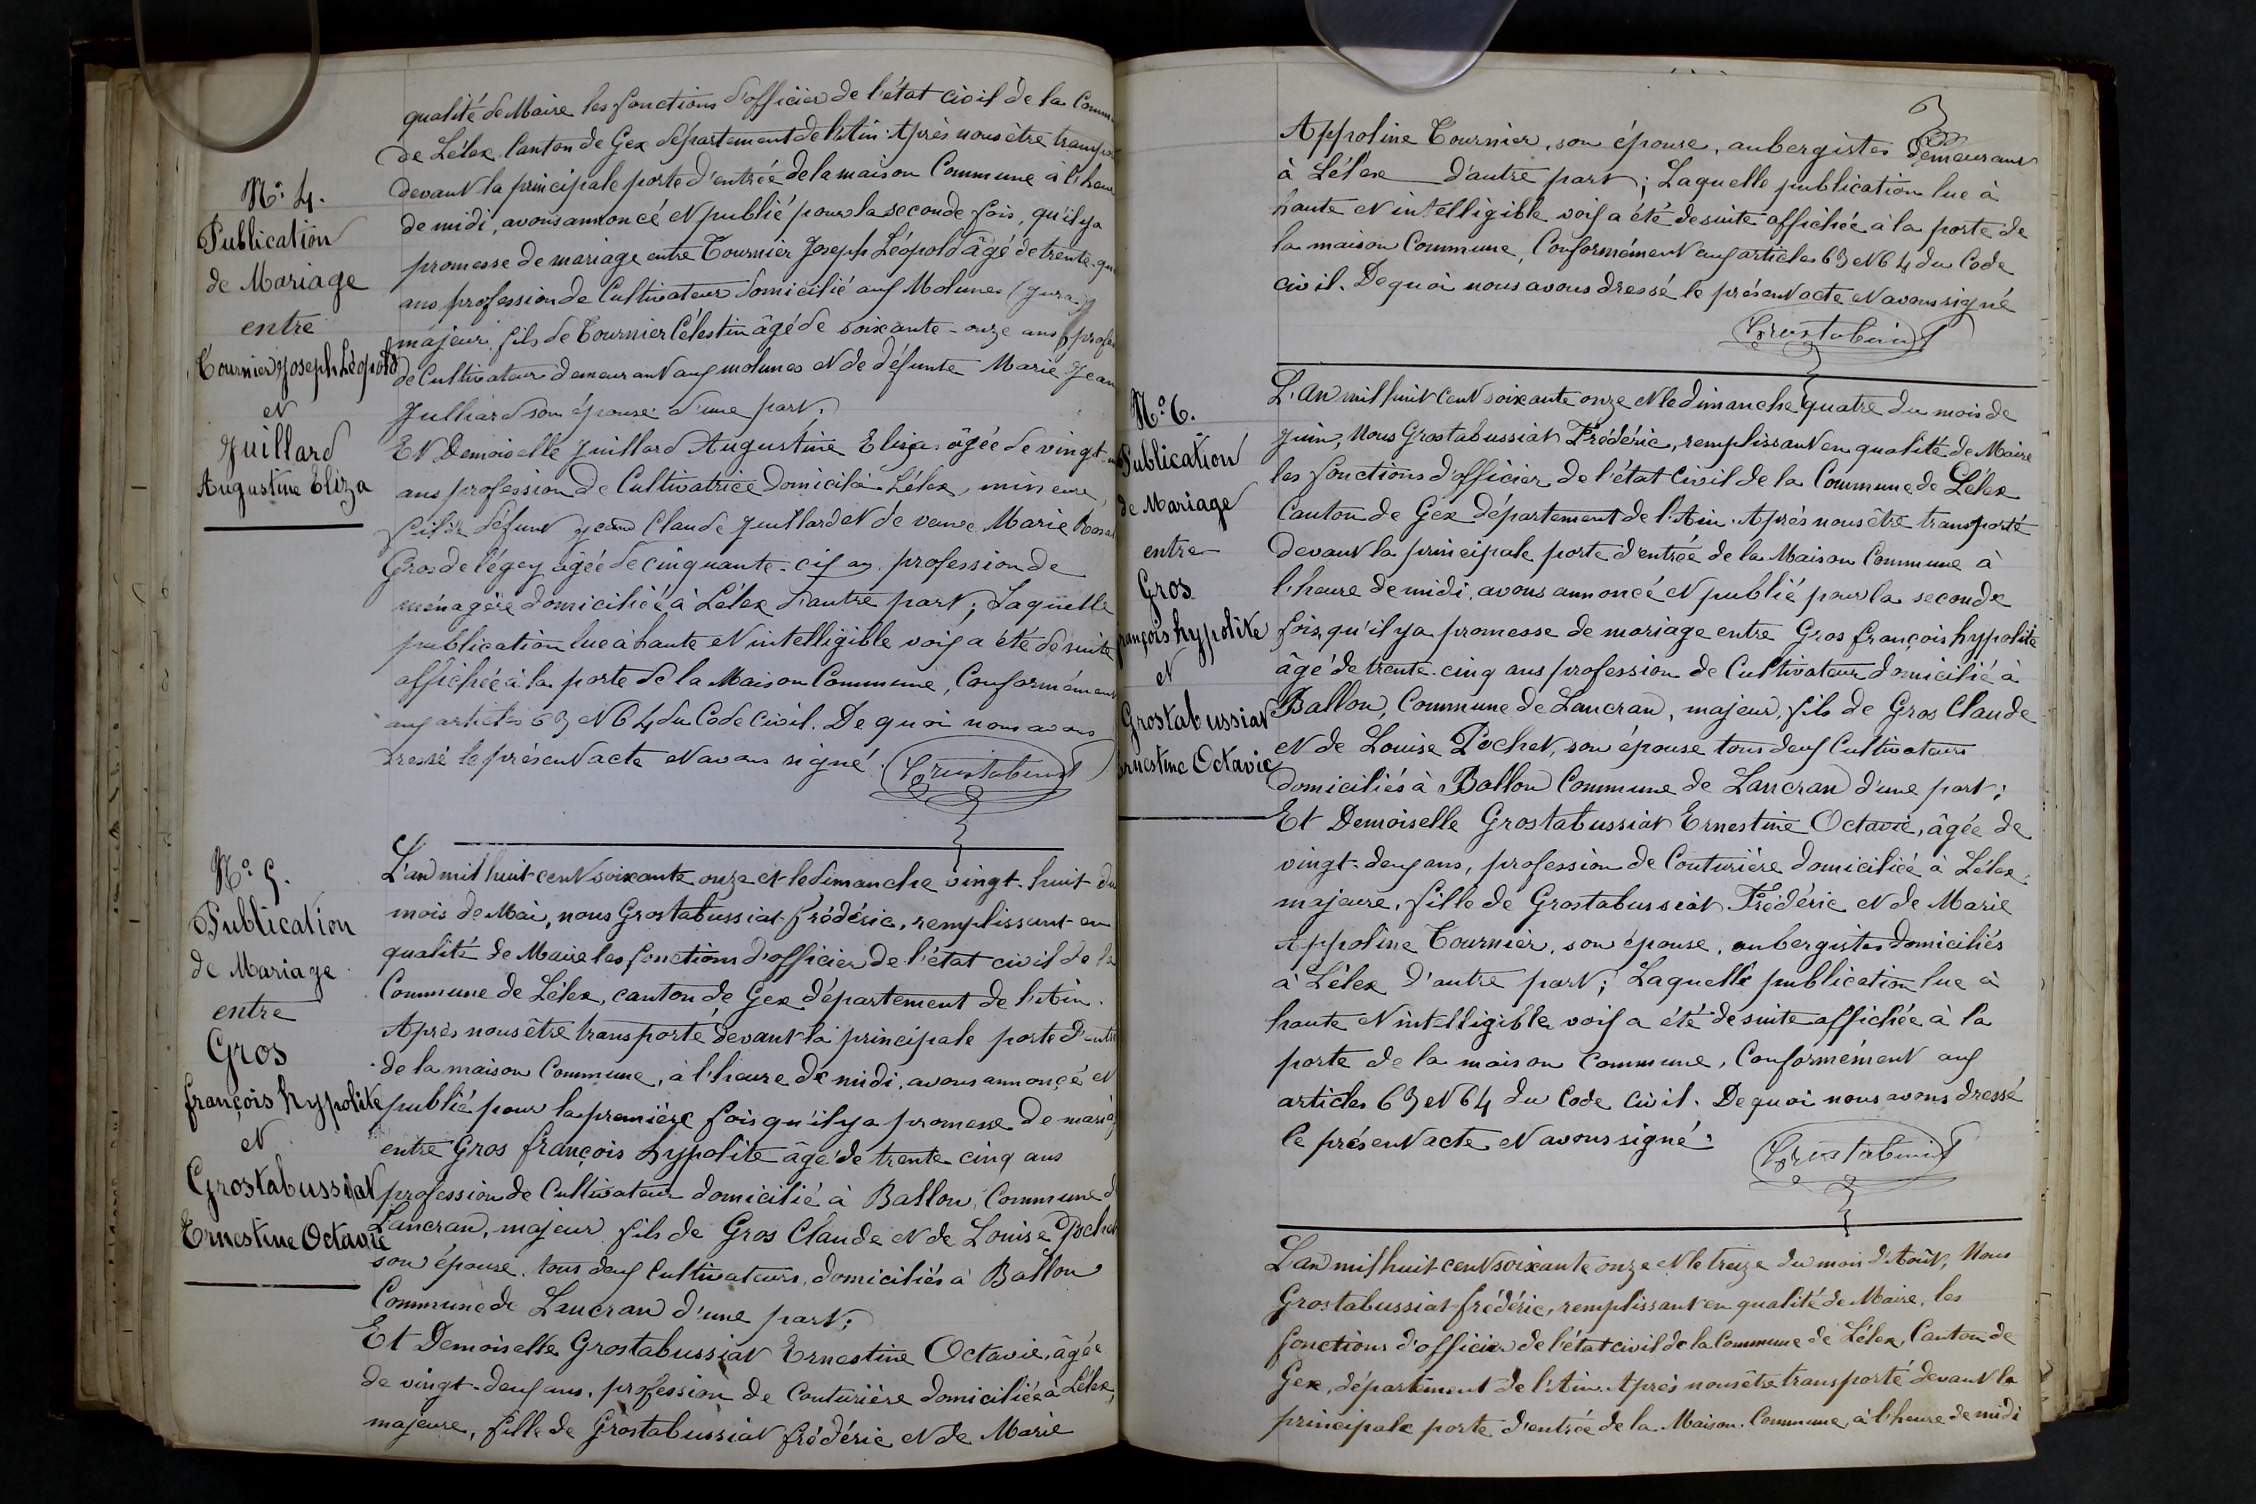 qualité de Maire les fonctions d'officier de l'état civil de la Comm
de Lélex, Canton de Gex département de l'Ain. Après nous être transpo
devant la principale porte d'entrée de la maison Commune à l'heure
de midi, avons annoncé et publié pour la seconde fois, qu'il y a
promesse de mariage entre Tournier Joseph Léopold âgé de trente-qu
ans, profession de Cultivateur domicilié aux Molunes (Jura)
majeur, fils de Tournier Célestin âgé de soixante-onze ans, profes
de Cultivateur demeurant aux molunes et de défunte Marie Jean
Julliard son épouse d'une part.
Et Demoiselle Juillard Augustine Eliza âgée de vingt-
ans profession de Cultivatrice domicilié à Lélex, mineure,
fille de défunt Jean Claude Juillard et de veuve Marie
Gros de légey âgée de cinquante-six ans profession de
ménagère domiciliée à Lélex d'autre part; Laquelle
publication lue à haute et intelligible voix a été de suite
affichée à la porte de la Maison Commune, Conformément
aux articles 63 et 64 du Code Civil. De quoi nous avons
dressé le présent acte et avons signé. Grostabussiat
N° 4.
Publication
de Mariage
entre
Tournier Joseph Léopold
et
Juillard
Augustine Eliza
L'an mil huit cent soixante onze et le dimanche vingt-huit du
mois de Mai, nous Grostabussiat Frédéric, remplissant en
qualité de Maire les fonctions d'officier de l'état civil de la
Commune de Lélex, canton de Gex département de l'Ain.
Après nous être transporté devant la principale porte d'entré
de la maison Commune, à l'heure de midi, avons annoncé et
publié pour la première fois qu'il y a promesse de maria
entre Gros françois hypolite âgé de trente cinq ans
profession de Cultivateur domicilié à Ballon, Commune d
Lancran, majeur fils de Gros Claude et de Louise Pochet
son épouse, tous deux Cultivateurs, domiciliés à Ballon
Commune de Lancran d'une part;
Et Demoiselle Grostabussiat Ernestine Octavie, âgée
de vingt-deux ans, profession de Couturière domiciliée à Lélex,
majeure, fille de Grostabussiat frédéric et de Marie
N° 5.
Publication
de Mariage
entre
Gros
françois hypolite
et
Grostabussiat
Ernestine Octavie
Appoline Tournier, son épouse, aubergistes demeurant
à Lélex d'autre part; Laquelle publication lue à
haute et intelligible voix a été de suite affichée à la porte de
la maison Commune, Conformément aux articles 63 et 64 du Code
civil. De quoi nous avons dressé le présent acte et avons signé
Grostabussiat
L'an mil huit cent soixante onze et le dimanche quatre du mois de
Juin, Nous Grostabussiat Frédéric, remplissant en qualité de Maire
les fonctions d'officier de l'état Civil de la Commune de Lélex
Canton de Gex département de l'Ain. Après nous être transporté
devant la principale porte d'entrée de la Maison Commune à
l'heure de midi, avons annoncé et publié pour la seconde
fois, qu'il y a promesse de mariage entre Gros françois hypolite
âgé de trente-cinq ans profession de Cultivateur domicilié à
Ballon, Commune de Lancran, majeur, fils de Gros Claude
et de Louise Pochet, son épouse tous deux Cultivateurs
domiciliés à Ballon Commune de Lancran d'une part;
Et Demoiselle Grostabussiat Ernestine Octavie, âgée de
vingt-deux ans, profession de Couturière domiciliée à Lélex,
majeure, fille de Grostabussiat Frédéric et de Marie
Appoline Tournier, son épouse, aubergistes domiciliés
à Lélex d'autre part; Laquelle publication lue à
haute et intelligible voix a été de suite affichée à la
porte de la maison Commune, Conformément aux
articles 63 et 64 du Code Civil. De quoi nous avons dressé
le présent acte et avons signé.
Grostabussiat
N° 6.
Publication
de Mariage
entre
Gros
françois hypolite
et
Grostabussiat
Ernestine Octavie
L'an mil huit cent soixante onze et le treize du mois d'Août, Nous
Grostabussiat frédéric, remplissant en qualité de Maire, les
fonctions d'officier de l'état civil de la Commune de Lélex, Canton de
Gex, département de l'Ain. Après nous être transporté devant la
principale porte d'entrée de la Maison Commune, à l'heure de midi